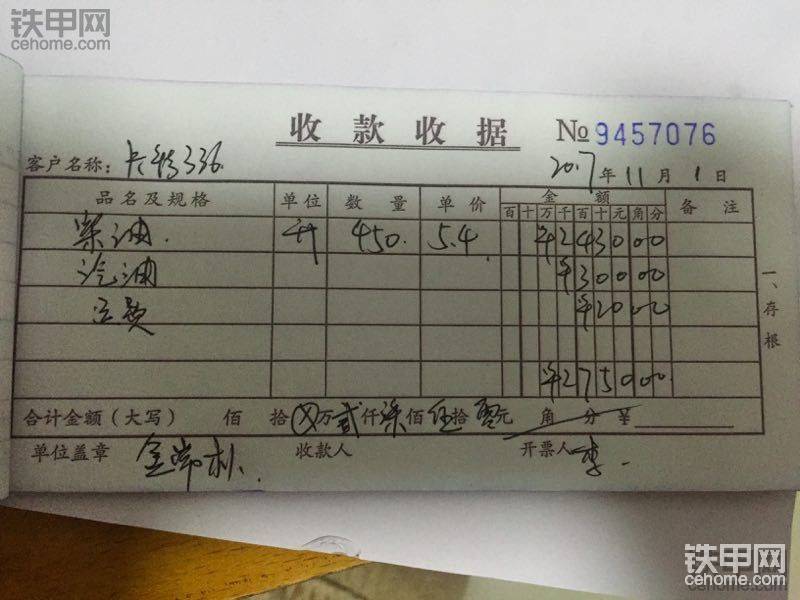 铁甲网
cehome.com
收款收据 № 9457076
客户名称：卡特336 2017年11月1日
品名及规格 单位 数量 单价 金额 备注
百十万千百十元角分
柴油 升 450. 5.4 ¥2430.00
汽油 ¥300.00
运费 ¥20.00
¥2750.00
一、存根
合计金额（大写） 佰 拾⊗万贰仟柒佰伍拾零元 角 分 ¥
单位盖章 收款人 开票人 李.
铁甲网
cehome.com